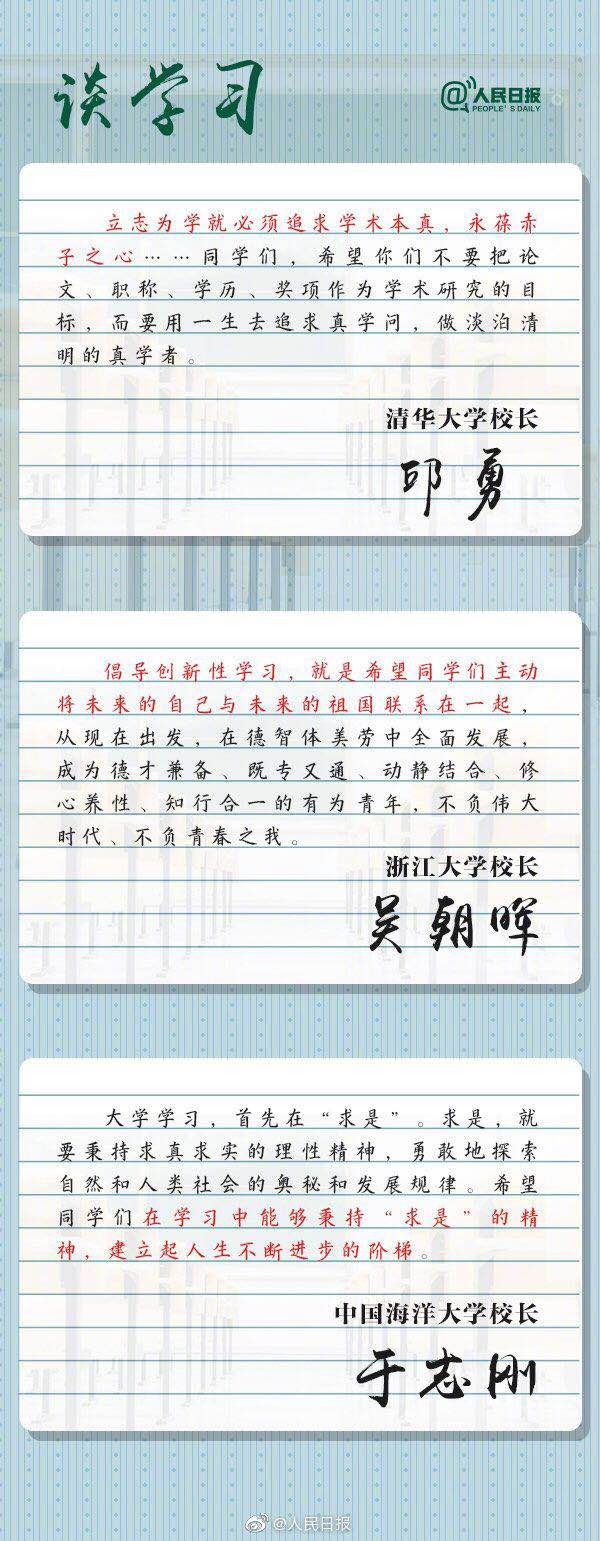 谈学习
@人民日报
PEOPLE'S DAILY
立志为学就必须追求学术本真，永葆赤
子之心……同学们，希望你们不要把论
文、职称、学历、奖项作为学术研究的目
标，而要用一生去追求真学问，做淡泊清
明的真学者。
清华大学校长
邱勇
倡导创新性学习，就是希望同学们主动
将未来的自己与未来的祖国联系在一起，
从现在出发，在德智体美劳中全面发展，
成为德才兼备、既专又通、动静结合、修
心养性、知行合一的有为青年，不负伟大
时代、不负青春之我。
浙江大学校长
吴朝晖
大学学习，首先在“求是”。求是，就
要秉持求真求实的理性精神，勇敢地探索
自然和人类社会的奥秘和发展规律。希望
同学们在学习中能够秉持“求是”的精
神，建立起人生不断进步的阶梯。
中国海洋大学校长
于志刚
@人民日报